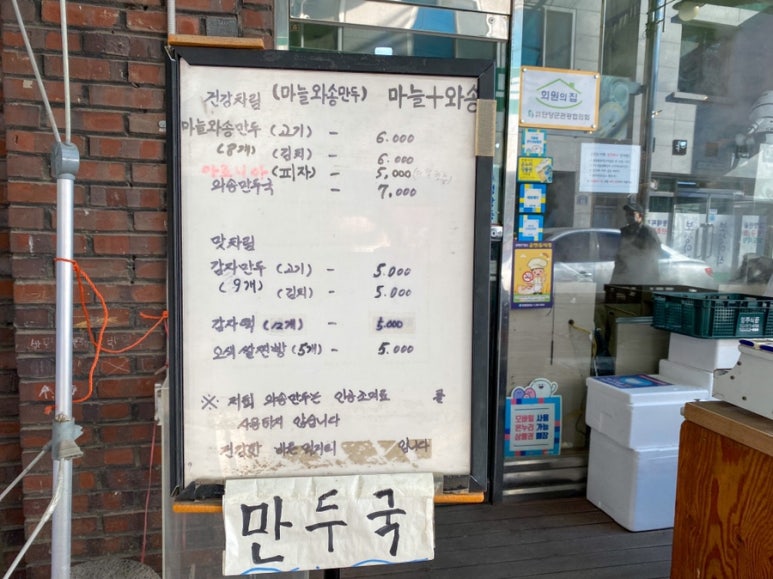 건강차림 (마늘와송만두) 마늘+와송
마늘와송만두 (고기) - 6.000
(8개) (김치) - 6.000
아로니아 (피자) - 5,000
와송만두국 - 7,000
맛차림
감자만두 (고기) - 5.000
(9개) (김치) - 5.000
감자떡 (12개) - 5.000
오색쌀찐빵 (5개) - 5.000
※ 저희 와송만두는 인공조미료 를
사용하지 않습니다
건강한 입니다
만두국
회원의집
모바일 사용
온누리 가능
상품권 매장